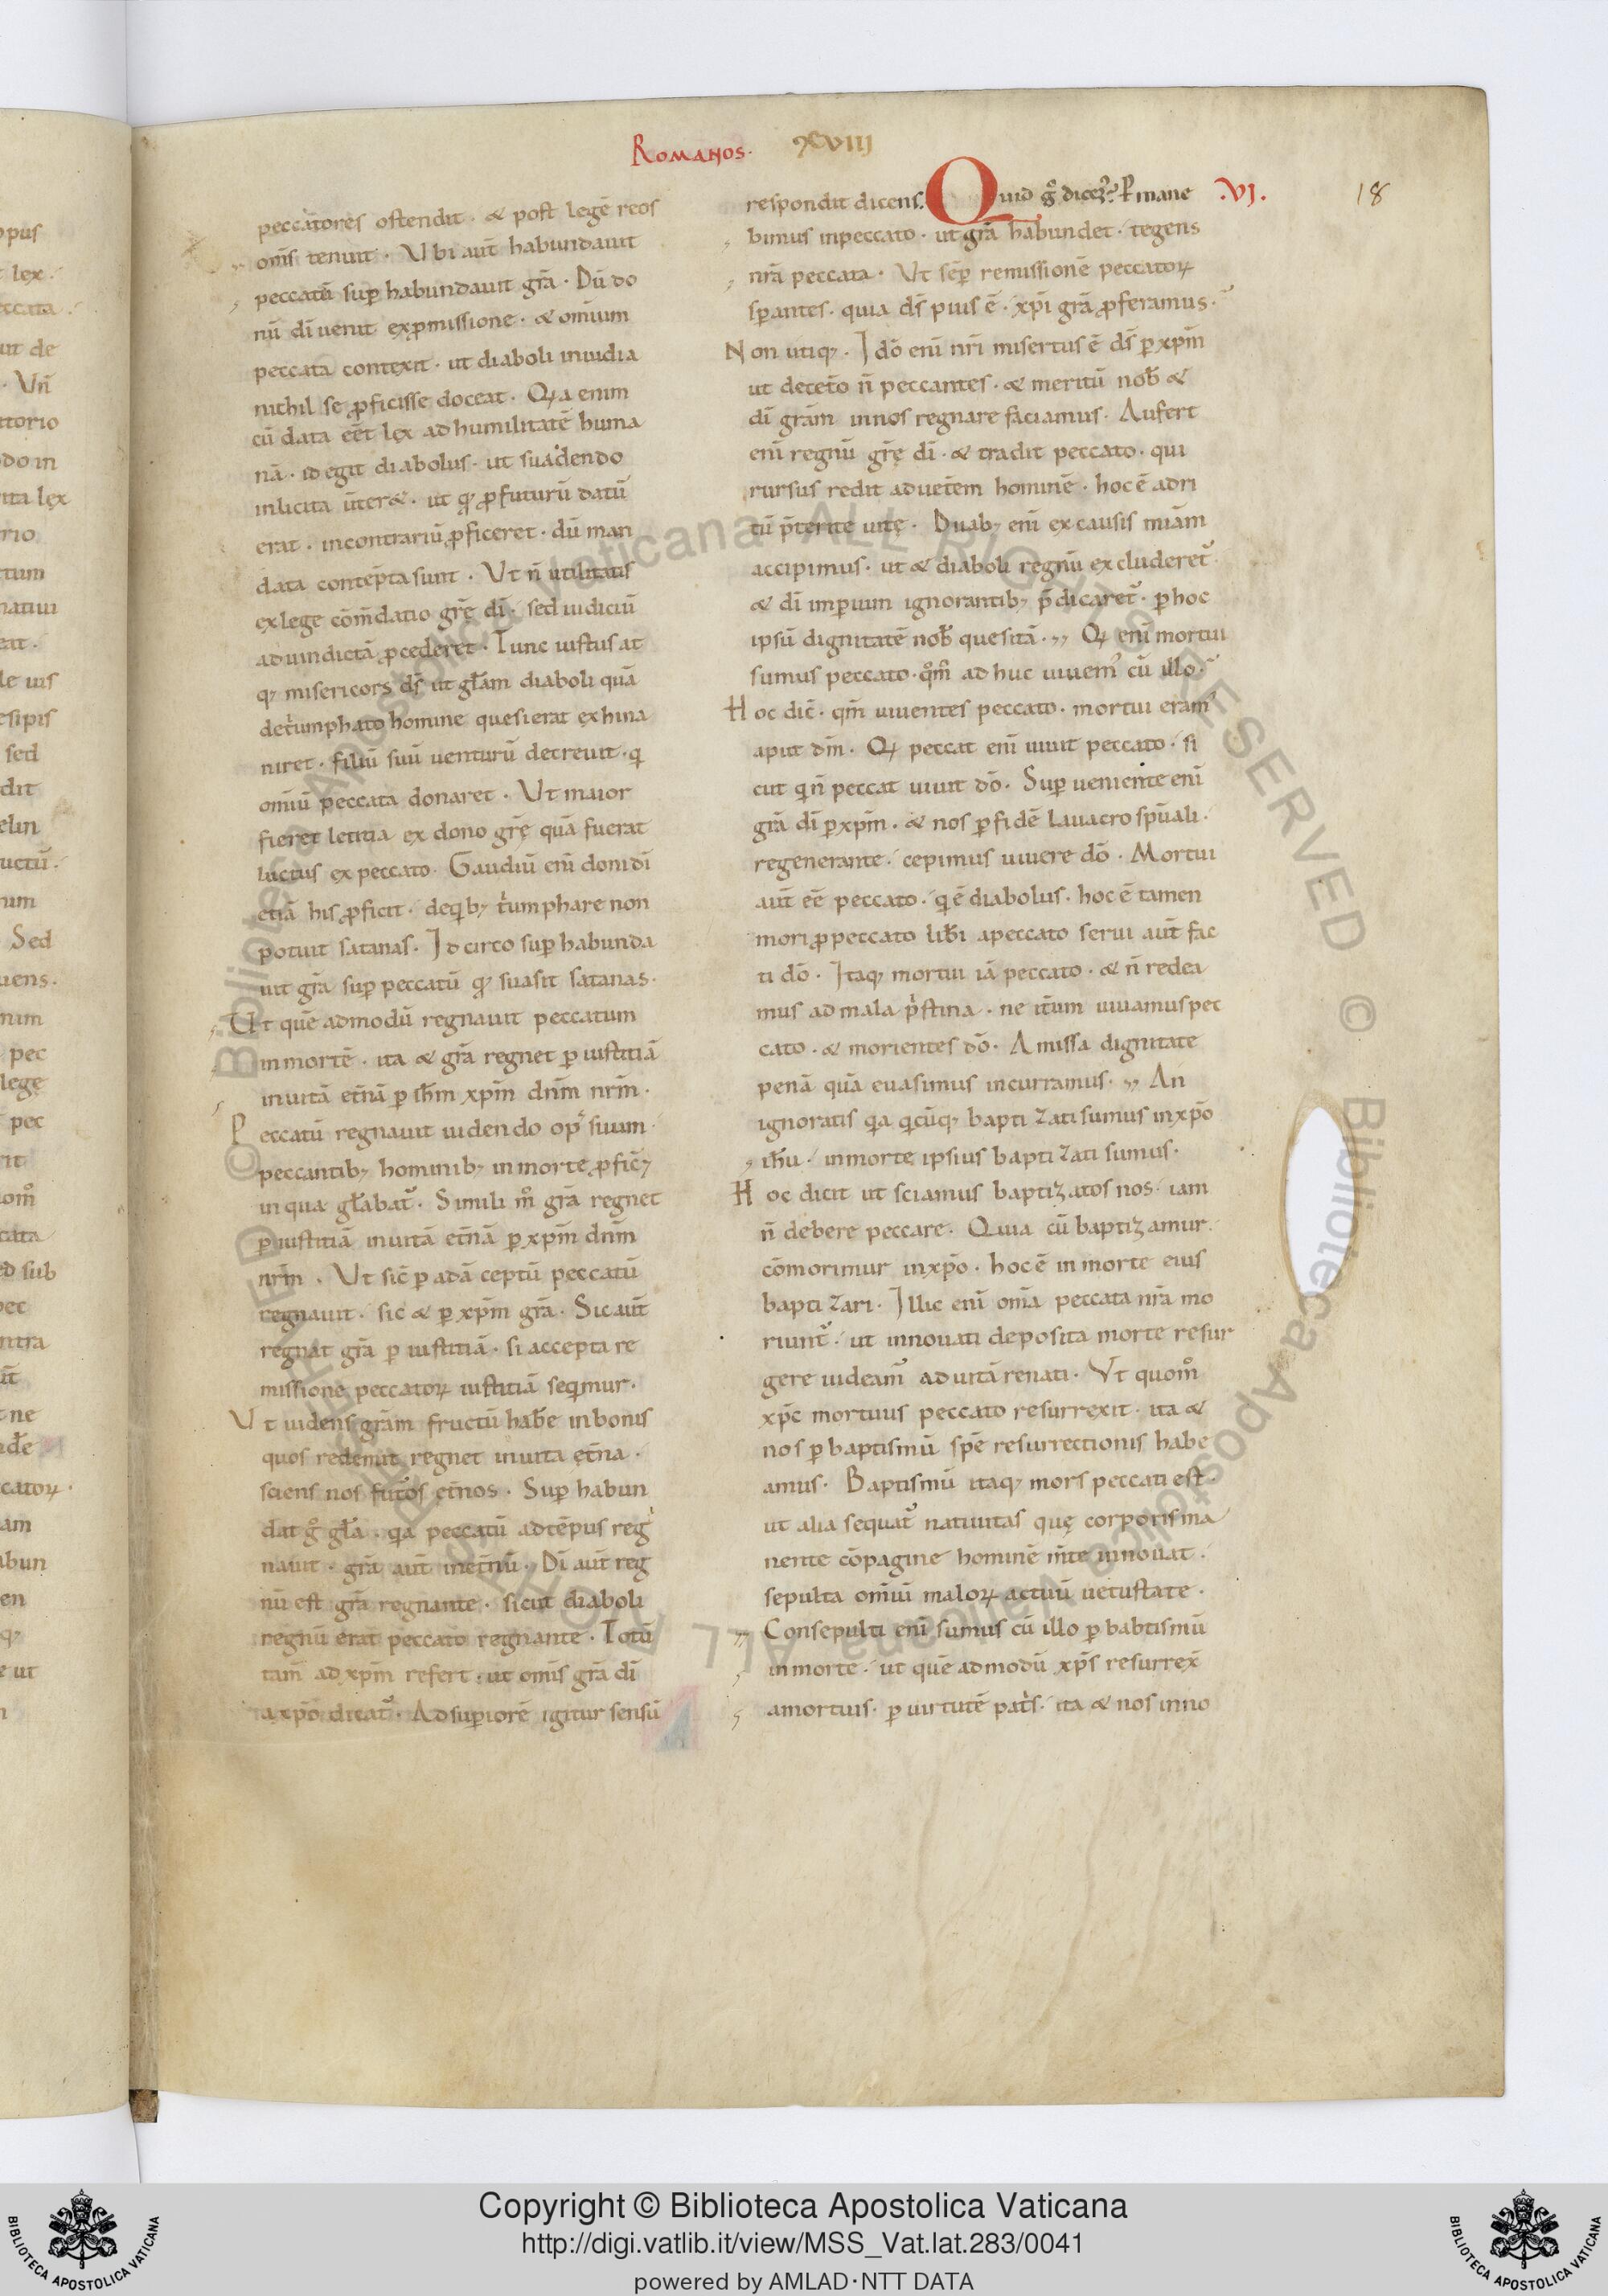 Romanos· XCVIII
18
peccatores ostendit· & post legē reos
om̄s tenuit· Vbi aut̄ habundauit
peccatū suꝑ habundauit gr̄a· Dū do
nū dī uenit exꝓmissione· & omīum
peccata contexit· ut diaboli inuidia
nithil se ꝓficisse doceat· Qꝛa enim
cū data eēt lex ad humilitatē huma
nā· id egit diabolus· ut suadendo
inlicita ūter&· ut qꝫ ꝓfuturū datū
erat· incontrariū ꝓficeret· dū man
data contēpta sunt· Vt n̄ utilitatis
exlege cōm̄datio grę̄ dī· sed iudiciū
aduindictā ꝓcederet· Tunc iustus at
qꝫ misericors dS̄ ut głam diaboli quā
detͥumphato homine quesierat exhina
niret· filiū suū uenturū decreuit· q̇
omīū peccata donaret· Vt maior
fieret letitia ex dono grę̄ quā fuerat
luctus ex peccato· Gaudiū enī donidī
etiā his ꝓficit· deq̇bꝫ tͥumphare non
potuit satanas· Idcirco suꝑ habunda
uit gr̄a suꝑ peccatū qꝫ suasit satanas·
Vt quē admodū regnauit peccatum
in mortē· ita & gr̄a regnet ꝑ iustitiā
in uitā etn̄ā ꝑ ih̄m xp̄m dn̄m nr̄m·
Peccatū regnauit uidendo op᾽ suum
peccantibꝫ hominibꝫ in morte ꝓfic̄ꝫ
in qua gła̅bat᾽· Simili m̊ gr̄a regnet
ꝑ iustitiā inuitā etn̄ā ꝑ xp̄m dn̄m
nr̄m· Vt sic̄ ꝑ adā ceptū peccatū
regnauit· sic & ꝑ xp̄m gr̄a· Sic aut̄
regnat gr̄a ꝑ iustitiā· si accepta re
missione peccatoꝝ iustitiā seq̇mur·
Vt uidens gr̄am fructū hab̄e in bonis
quos redemit regnet inuita etn̄a·
sciens nos fut᾽os etn̄os· Suꝑ habun
dat g̊ gła· q̇a peccatū adtēpus reg
nauit· gr̄a aut̄ inetn̄ū· Dī aut̄ reg
nū est gr̄a regnante· sicut diaboli
regnū erat peccato regnante· Totū
tam̄ ad xp̄m refert· ut om̄is gr̄a dī
a xp̄o dicat᾽· Ad suꝑiorē igitur sensū
respondit dicens· Quid g̊ dicem᾽? Ꝑmane ·VI·
bimus inpeccato· ut gr̄a habundet· tegens
nr̄a peccata· Vt sēꝑ remissionē peccatoꝝ
sꝑantes· quia dS̄ pius ē· xp̄i gr̄ā ꝓferamus·
Non utiqꝫ· Idō enī nr̄i misertus ē dS̄ ꝑ xp̄m
ut deceto n̄ peccantes· & meritū nob̄ &
dī gr̄am in nos regnare faciamus· Aufert
enī regnū grę̄ dī· & tradit peccato· qui
rursus redit aduet̄em hominē· hoc ē adri
tū p̄terite uitę· Duabꝫ enī ex causis mi̅am
accipimus· ut & diaboli regnū excluderet᾽
& dī imꝑium ignorantibꝫ p̄dicaret᾽· ꝑ hoc
ipsū dignitatē nob̄ quesitā· Qꝫ enī mortui
sumus peccato· q̊m̄ ad huc uiuem᾽ cū illo·
Hoc dic̄· qm̄ uiuentes peccato· mortui eram᾽
aput dm̄· Qꝫ peccat enī uiuit peccato· si
cut q̇ n̄ peccat uiuit dō· Suꝑ ueniente enī
gr̄a dī ꝑ xp̄m· & nos ꝑ fidē lauacro sp̄uali·
regenerante· cepimus uiuere dō· Mortui
aut̄ eē peccato· q̇ ē diabolus· hoc ē tamen
mori ꝓ peccato lib̄i apeccato serui aut̄ fac
ti dō· Itaqꝫ mortui iā peccato· & n̄ redea
mus ad mala pͥstina· ne it̄um uiuamus pec
cato· & morientes dō· Amissa dignitate
penā quā euasimus incurramus· An
ignoratis q̇a q̇cūqꝫ baptizati sumus in xp̄o
ih̄u· in morte ipsius baptizati sumus·
Hoc dicit ut sciamus baptizatos nos· iam
n̄ debere peccare· Quia cū baptizamur·
cōmorimur in xp̄o· hoc ē in morte eius
baptizari· Illic enī om̄a peccata nr̄a mo
riunt᾽· ut innouati deposita morte resur
gere uideam᾽ ad uitā renati· Vt quom̊
xp̄c mortuus peccato resurrexit· ita &
nos ꝑ baptismū spē resurrectionis habe
amus· Baptismū itaqꝫ mors peccati est·
ut alia sequat᾽ natiuitas quę corporis ma
nente cōpagine hominē m̄te innouat·
sepulta omīū maloꝝ actuū uetustate·
Consepulti enī sumus cū illo ꝑ babtismū
in morte· ut quē admodū xp̄s resurrex̄
amortuis· ꝑ uirtutē patͥs· ita & nos inno
© Biblioteca Apostolica Vaticana ALL RIGHTS RESERVED
Copyright © Biblioteca Apostolica Vaticana
http://digi.vatlib.it/view/MSS_Vat.lat.283/0041
powered by AMLAD·NTT DATA
BIBLIOTECA APOSTOLICA VATICANA
BIBLIOTECA APOSTOLICA VATICANA